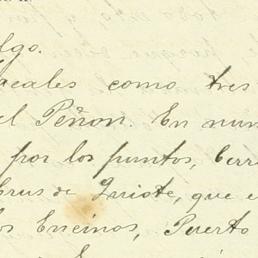 lgo.
acales como tres
el Peñon. En nun
por los puntos, Cerr
brus de Quiote, que e
os Encinos, Puerto